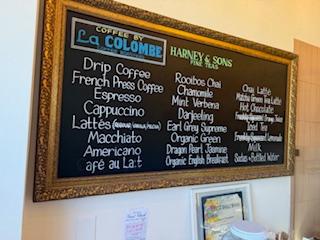 COFFEE BY
La COLOMBE
HARNEY & SONS
FINE TEAS
Drip Coffee
French Press Coffee
Espresso
Cappuccino
Lattés
Macchiato
Americano
afé au Lait
Rooibos Chai
Chamomile
Mint Verbena
Darjeeling
Earl Grey Supreme
Organic Green
Dragon Pearl Jasmine
Organic English Breakfast
Chai Latté
Matcha Green Tea Latté
Hot Chocolate
Freshly Squeezed Orange Juice
Iced Tea
Freshly Squeezed Lemonade
Milk
Sodas & Bottled Water